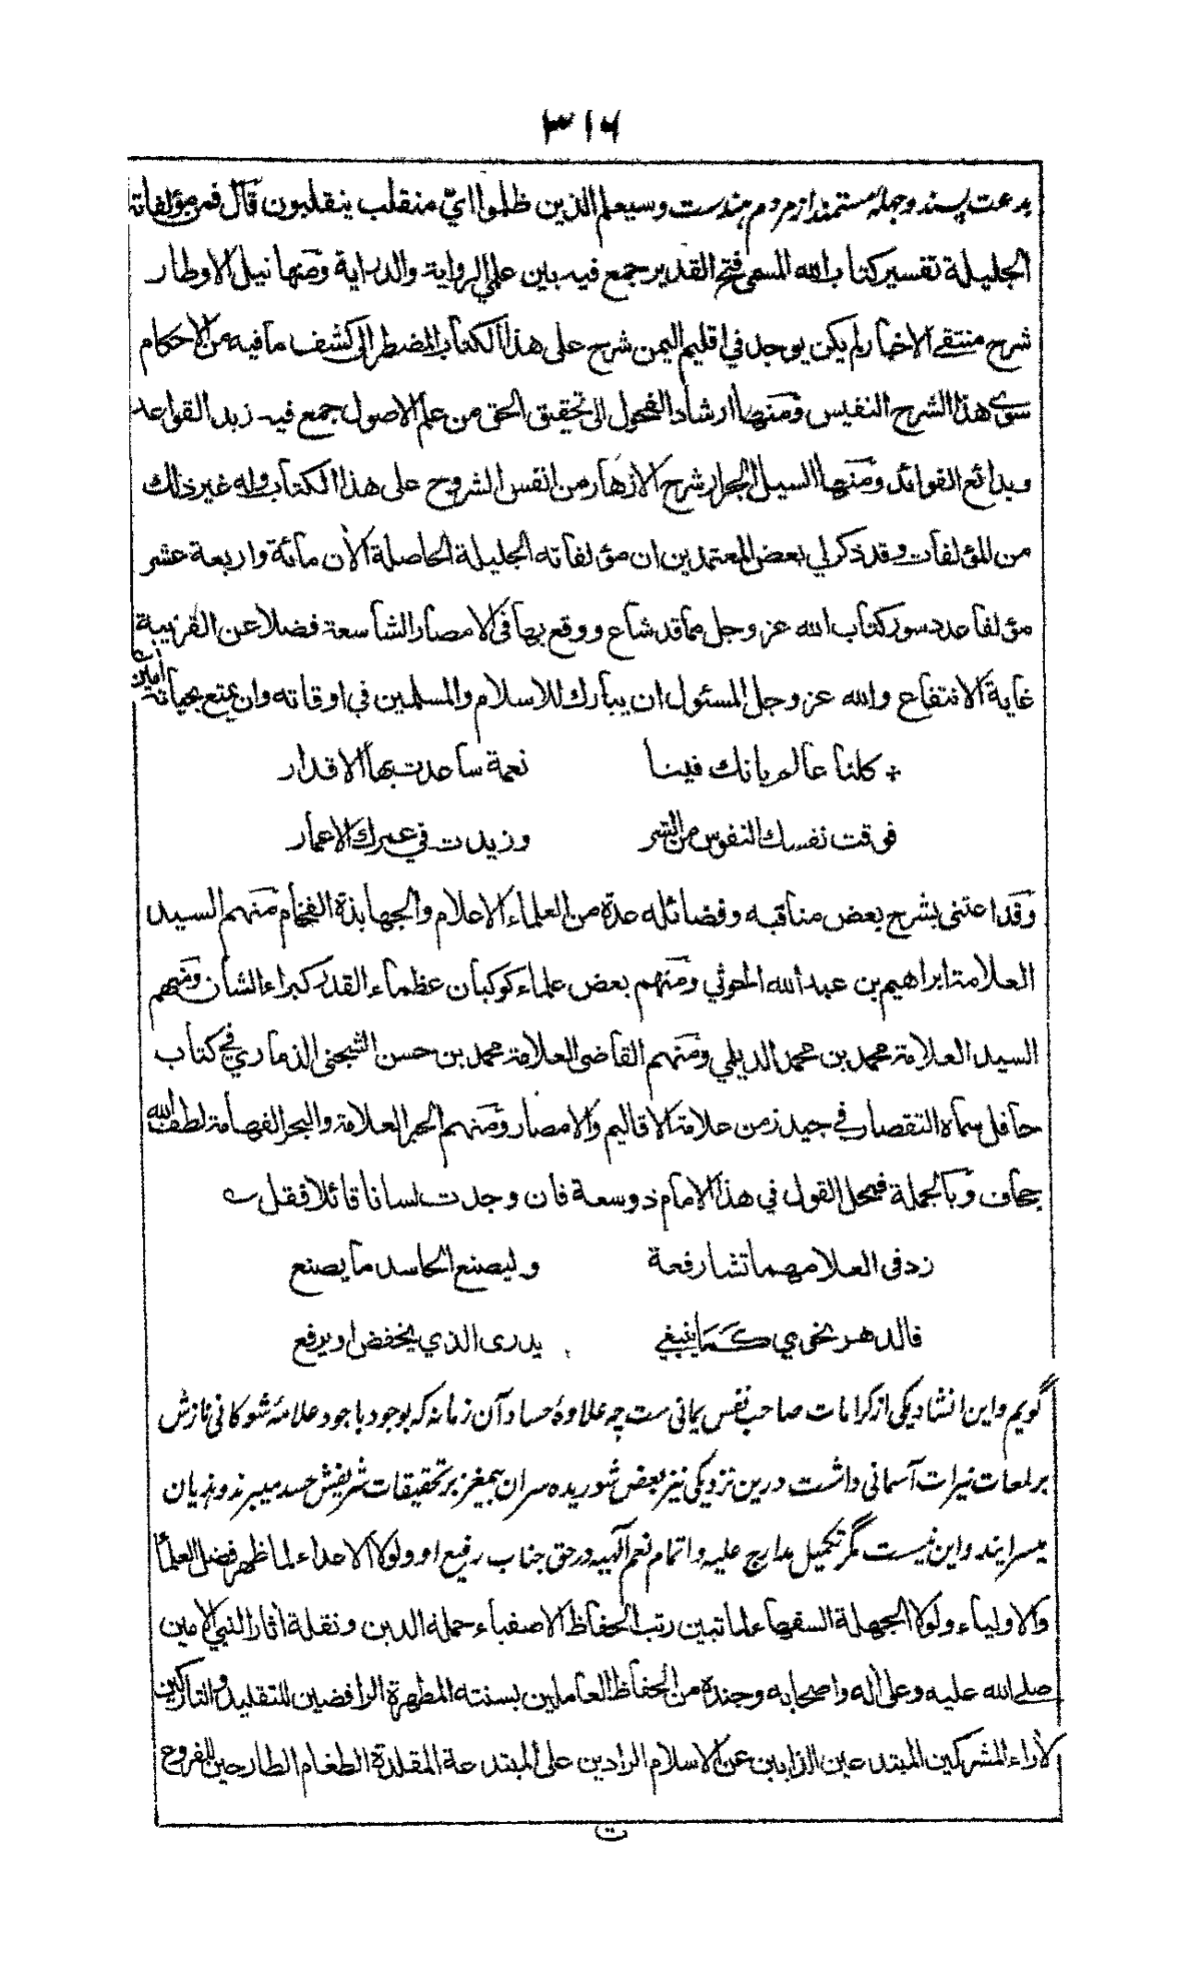 ٣١٦
بدعت پسند و جمله مستمند از مردم هندست وسيعلم الذين ظلموا اي منقلب ينقلبون قال فمن مؤلفاته
الجليلة تفسير كتاب الله المسمى فتح القدير جمع فيه بين علمي الرواية والدراية ومنها نيل الاوطار
شرح منتقى الاخبار لم يكن يوجد في اقليم اليمن شرح على هذا الكتاب المضطر الى كشف ما فيه من الاحكام
سوى هذا الشرح النفيس ومنها ارشاد الفحول الى تحقيق الحق من علم الاصول جمع فيه زبد القواعد
وبدائع الفوائد ومنها السيل الجرار شرح الازهار من انفس الشروح على هذا الكتاب وله غير ذلك
من المؤلفات وقد ذكر لي بعض المعتمدين ان مؤلفاته الجليلة الحاصلة الأن مائة واربعة عشر
مؤلفا عدد سور كتاب الله عز وجل مما قد شاع ووقع بها في الامصار الشاسعة فضلا عن القريبة
غاية الانتفاع والله عز وجل المسئول ان يبارك للاسلام والمسلمين في اوقاته وان يمتع بحياته أمين
كلنا عالم بانك فينا نعمة ساعدت بها الاقدار
فوقت نفسك النفوس من الشر وزيدت في عمرك الاعمار
وقد اعتنى بشرح بعض مناقبه وفضائله عدة من العلماء الاعلام والجهابذة الفخام منهم السيد
العلامة ابراهيم بن عبد الله الحوثي ومنهم بعض علماء كوكبان عظماء القدر كبراء الشان ومنهم
السيد العلامة محمد بن محمد الديلي ومنهم القاضى العلامة محمد بن حسن الشجنى الذماري في كتاب
حافل سماه التقصار في جيد زمن علامة الاقاليم والامصار ومنهم الحبر العلامة والبحر الفهامة لطف الله
جحاف وبالجملة فمحل القول في هذا الامام ذو سعة فان وجدت لسانا قائلا فقل
زد فى العلا مهما تشا رفعة وليصنع الحاسد ما يصنع
فالدهر نحوي كما ينبغي يدرى الذي يخفض او يرفع
گويم و اين انشاد يكى از كرامات صاحب نفس يمانى ست چه علاوۀ حساد آن زمانه كه بوجود باجود علامۀ شوكانى نازش
بر لمعات نيرات آسمانى داشت درين نزديكى نيز بعض شوريده سران بيمغز بر تحقيقات شريفش حسد ميبرند و هذيان
ميسرايند و اين نيست مگر تكميل مدارج عليه و اتمام نعم آلهيه در حق جناب رفيع او ولولا الاعداء لما ظهر فضل العلماء
والاولياء ولولا الجهلة السفهاء لما تبين رتب الحفاظ الاصفياء حملة الدين ونقلة أثار النبي الامين
صلى الله عليه وعلى أله واصحابه وجنده من الحفاظ العاملين بسنته المطهرة الرافضين للتقليد والتاركين
لأراء المشركين المبتدعين الذابين عن الاسلام الرادين على المبتدعة المقلدة الطغام الطارحين للفروع
ت